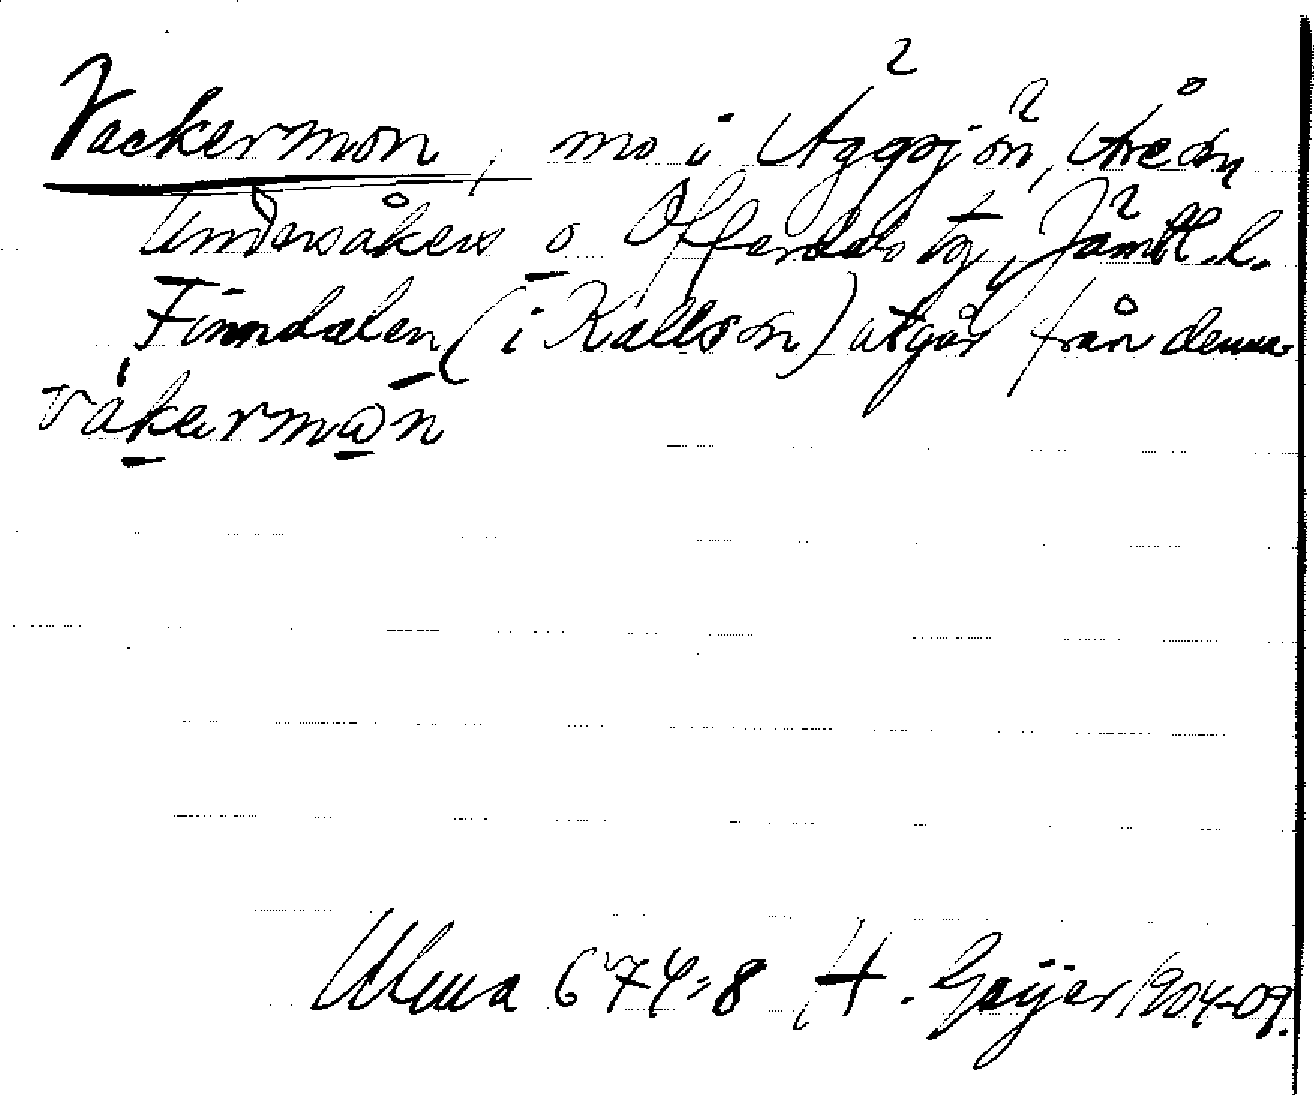 Vackermon, mo i Äggsjön, Åre sn
Undersåkers o. Offerdals tg, Jämtl. l.
Finndalen (i Kallsön) utgår från denna
våkermøn
Ulma 674:8, H. Geijer 1904-09.